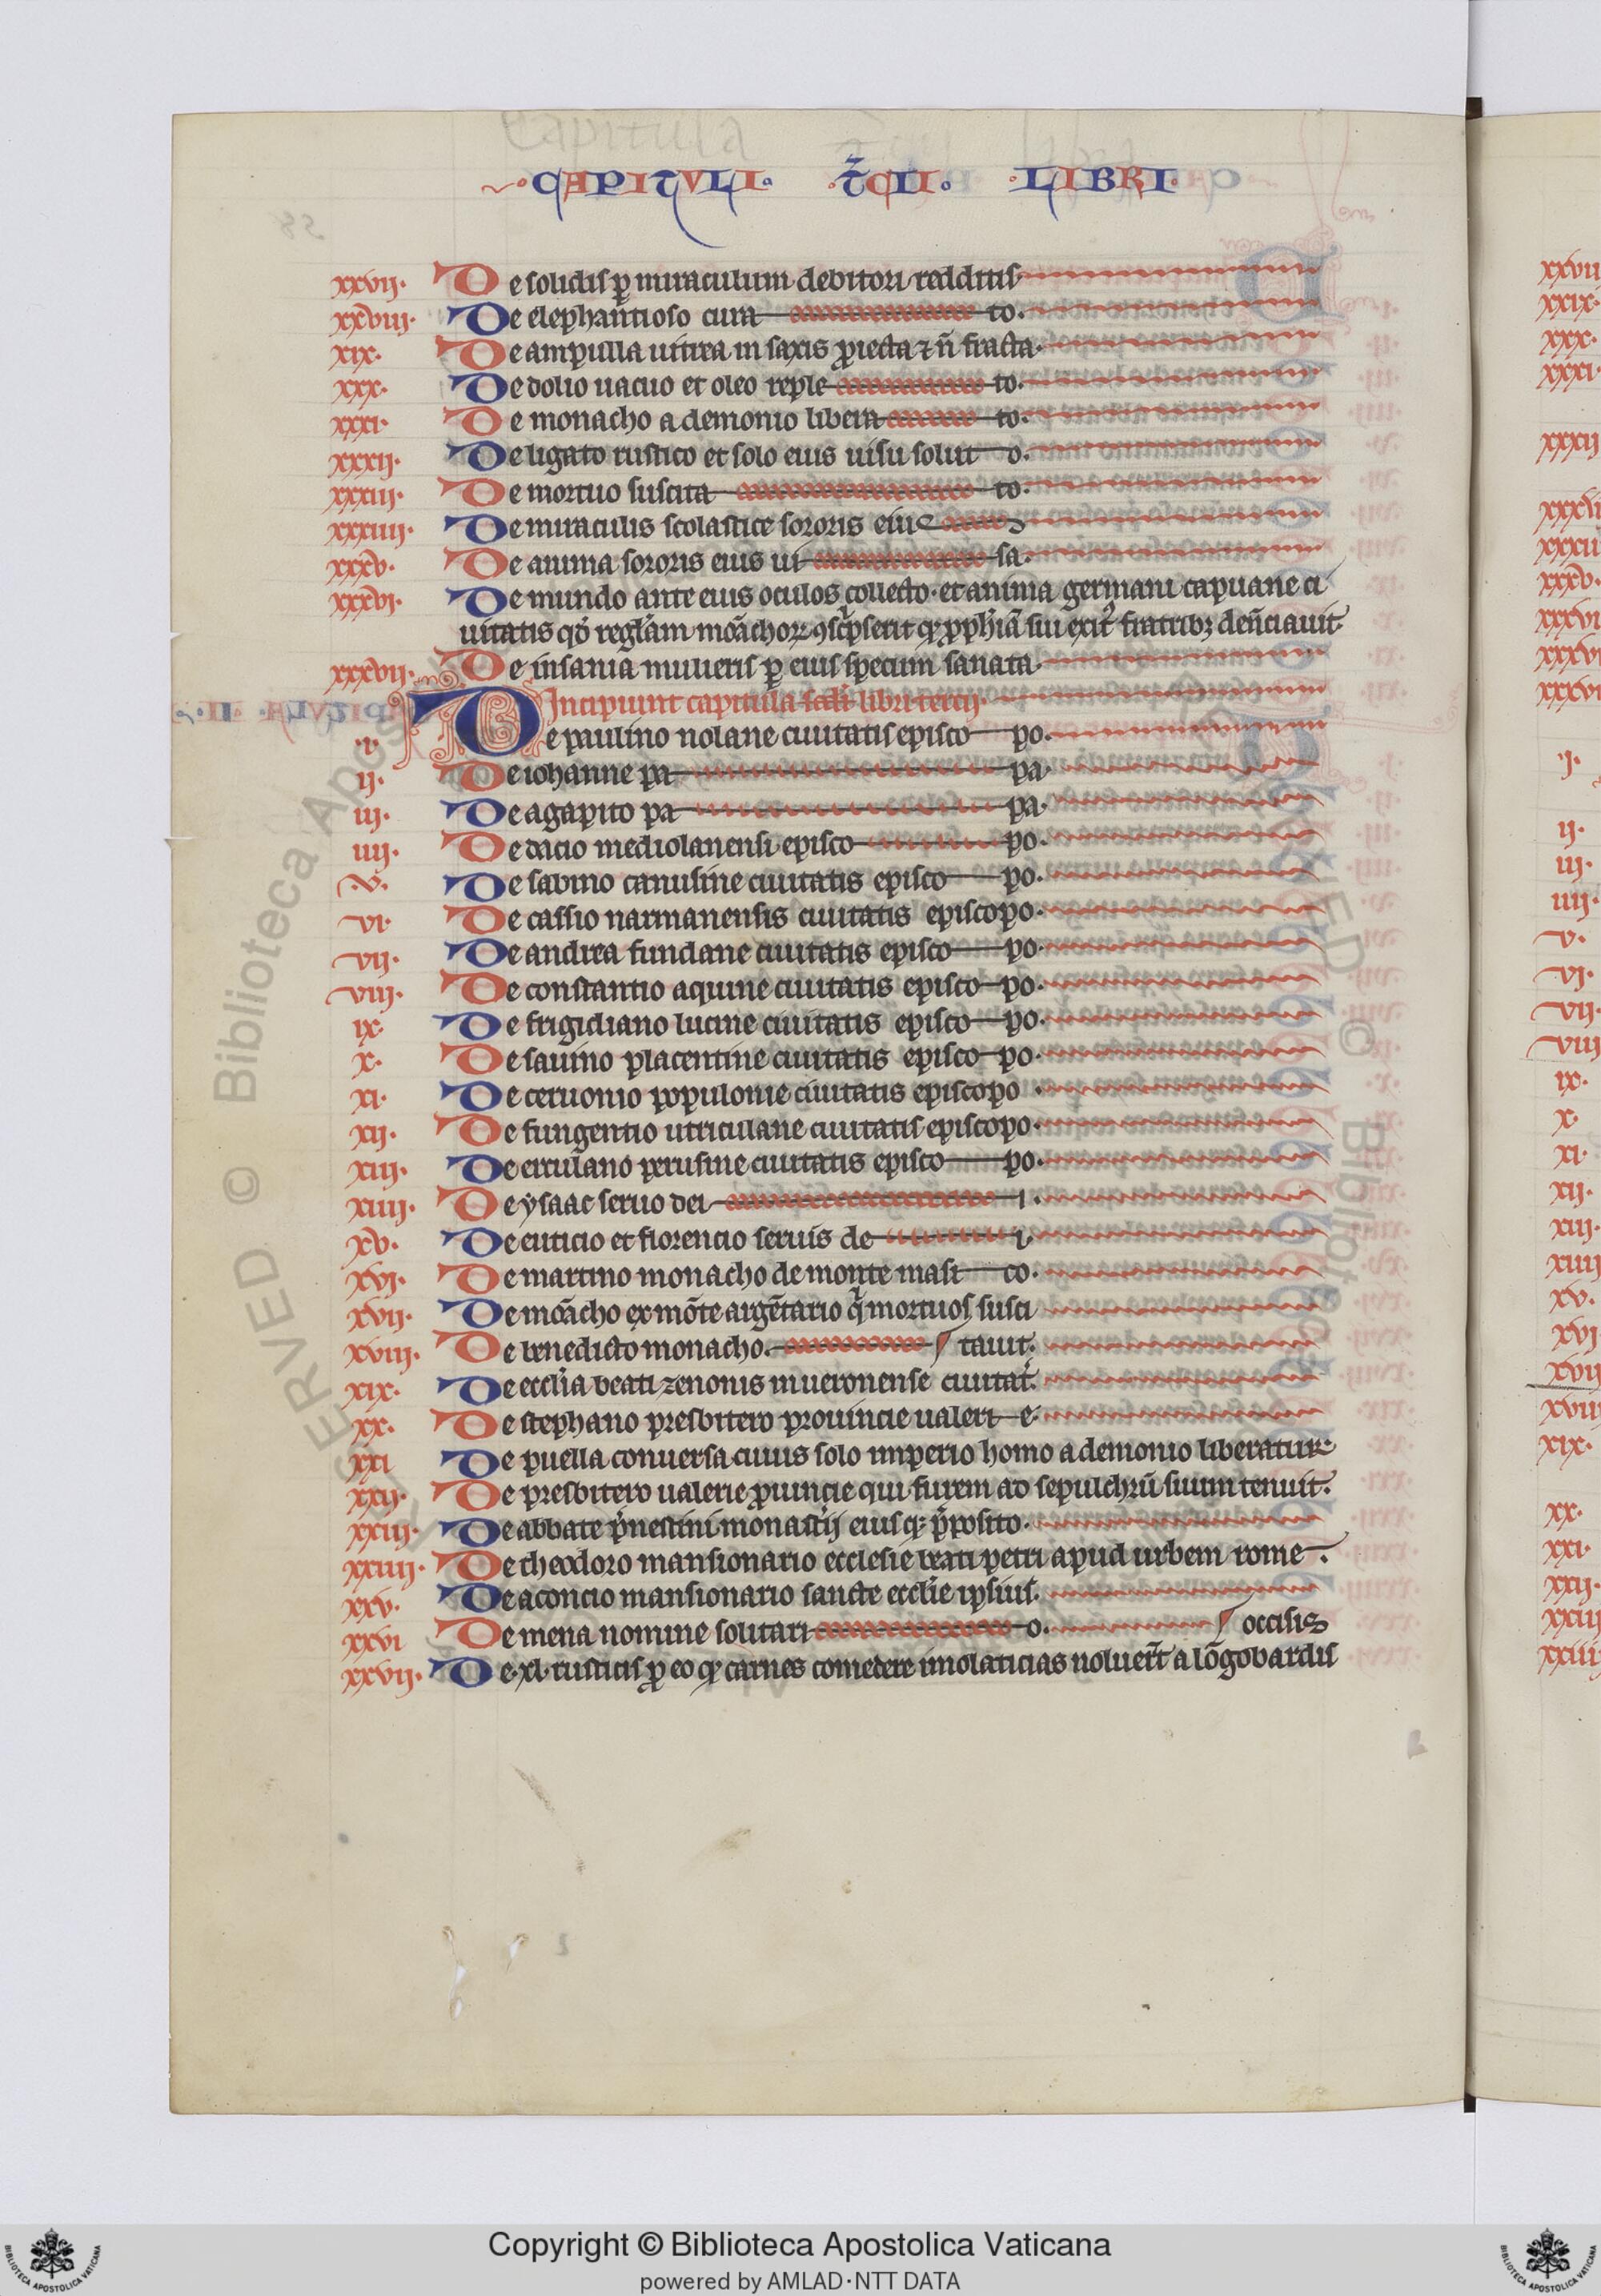 CAPITULI. T̄CII. LIBRI.
xxvij. De solidis ꝑ miraculum debitori redditis
xxviii. De elephantioso cura to.
xix. De ampulla uitrea in saxis ꝓiecta ⁊ n̄ fracta.
xxx. De dolio uacuo et oleo reple to.
xxxi. De monacho a demonio libera to.
xxxij. De ligato rustico et solo eius uisu solut o.
xxxiij. De mortuo suscita to.
xxxiiij. De miraculis scolastice sororis eius
xxxv. De anima sororis eius ui sa.
xxxvi. De mundo ante eius oculos collecto. et anima germani capuane ci
uitatis
xxxvij. De insania mulieris ꝑ eius specum sanata.
Incipiunt capitula libri tercij.
.i. De paulino nolane ciuitatis episco po.
ij. De iohanne pa pa.
iij. De agapito pa pa.
iiij. De dacio mediolanensi episco po.
.v. De sabino canusine ciuitatis episco po.
vi. De cassio narmanensis ciuitatis episcopo.
vij. De andrea fundane ciuitatis episco po.
viij. De constantio aquine ciuitatis episco po.
ix. De frigidiano lucine ciuitatis episco po.
x. De sauino placentine ciuitatis episco po.
xi. De ceruonio populonie ciuitatis episcopo.
xij. De fungentio utriculane ciuitatis episcopo.
xiij. De erculano perusine ciuitatis episco po.
xiiij. De ysaac seruo dei i.
xv. De euticio et florencio seruis de i.
xvi. De martino monacho de monte masi co.
xvij. De mōacho ex mōte argētario q̇ mortuos susci
xviij. De benedicto monacho. tauit.
xix. De ecclīa beati zenonis in ueronense ciuitat.
xx. De stephano presbitero prouincie ualeri e.
xxi De puella conuersa cuius solo imperio homo a demonio liberatur
xxij. De presbitero ualerie ꝓuincie qui furem ad sepulchrū suum tenuit.
xxiij. De abbate p̄nestini monastīj eiusq; p̄posito.
xxiiij. De theodoro mansionario ecclesie beati petri apud urbem rome.
xxv. De aconcio mansionario sancte ecclīe ipsius.
xxvi De mena nomine solitari o. occisis
xxvij. De .xl. rusticis ꝓ eo ꝙ carnes comedere imolaticias noluer̄t a lōgobardis
xxviii
xxix.
xxx.
xxxi.
Copyright © Biblioteca Apostolica Vaticana
powered by AMLAD·NTT DATA